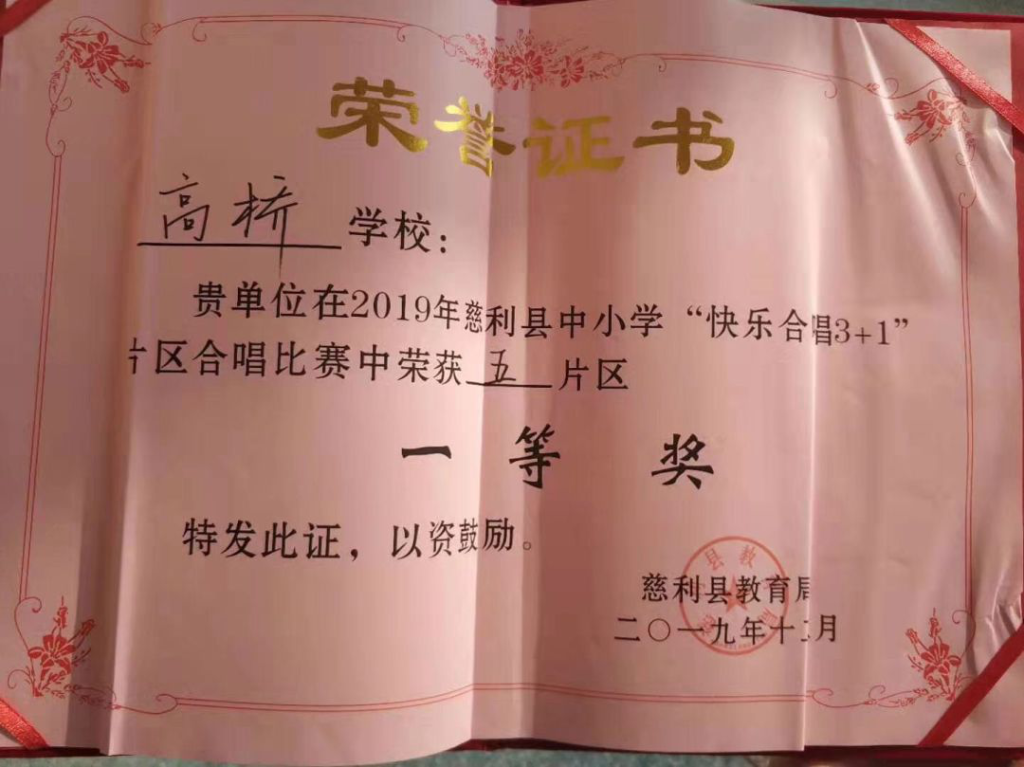 荣誉证书
高桥学校：
贵单位在2019年慈利县中小学“快乐合唱3+1”
片区合唱比赛中荣获五片区
一等奖
特发此证，以资鼓励。
慈利县教育局
二〇一九年十二月
县教